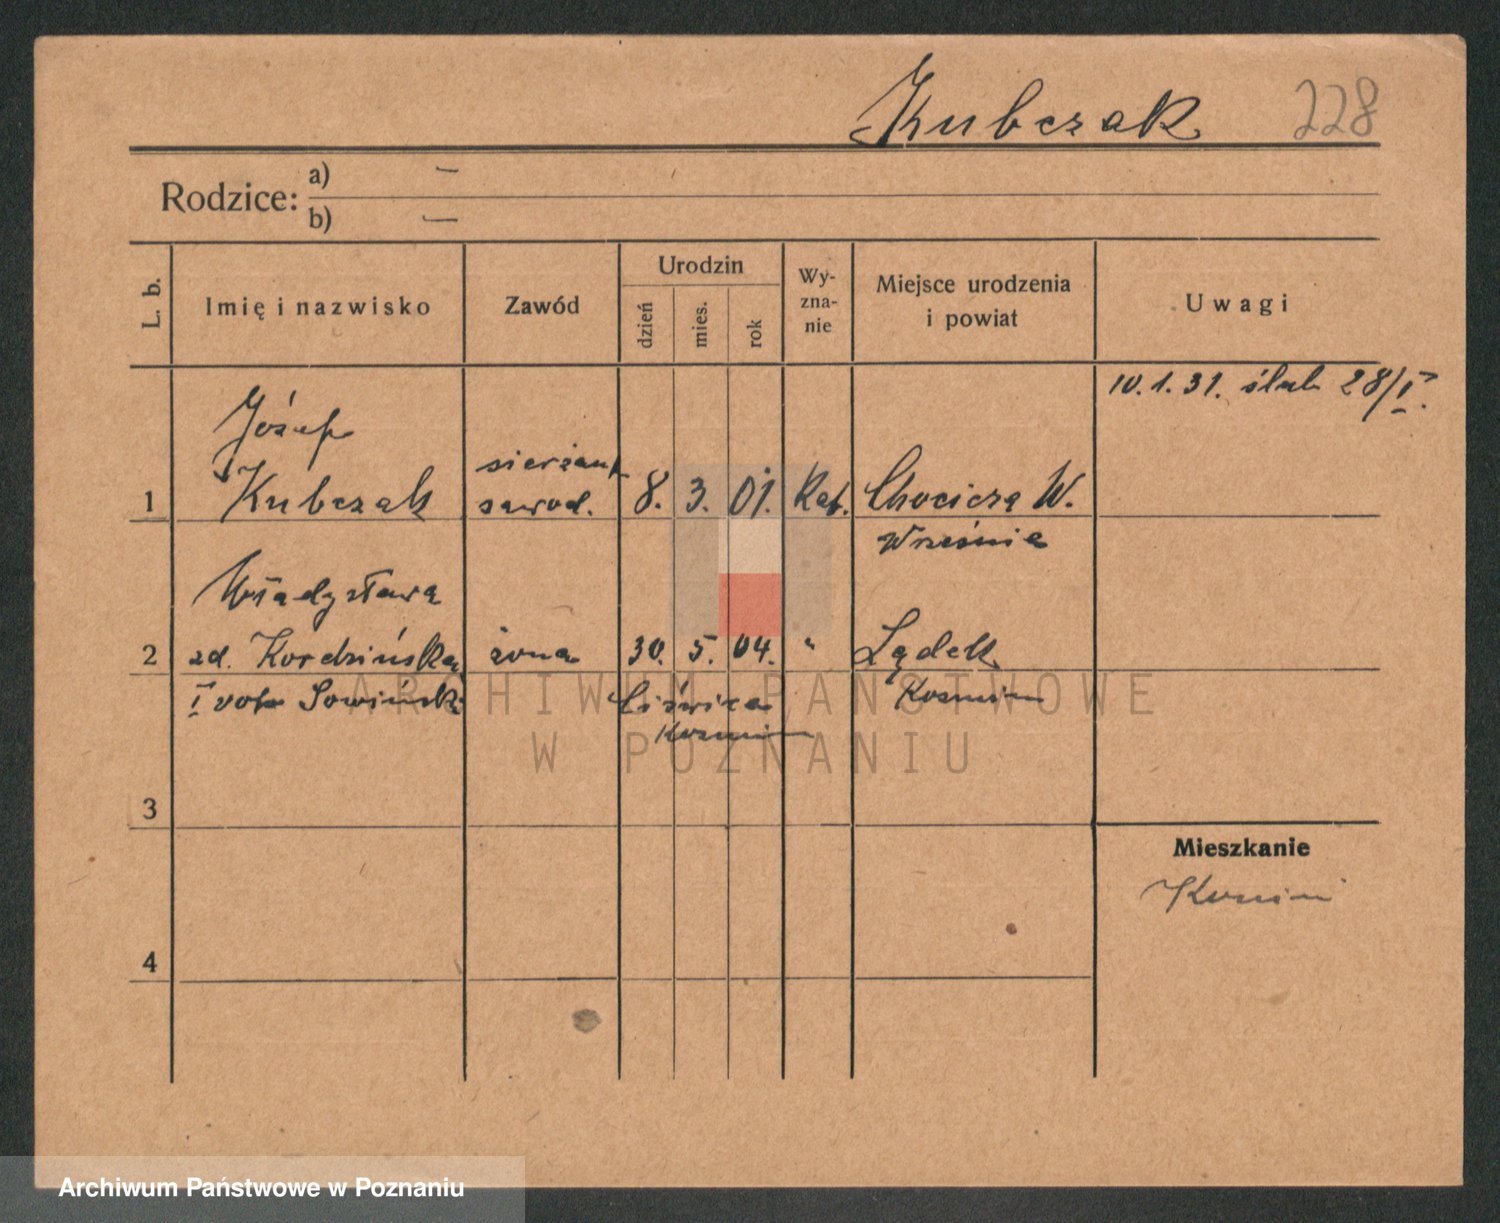 Kubczak 228
Rodzice: a) —
b) —
L. b. Imię i nazwisko Zawód Urodzin dzień mies. rok Wy-zna-nie Miejsce urodzenia i powiat Uwagi
10. 1. 31. ślub 28/I.
Józef
sierżant
1 Kubczak zawod. 8. 3. 01. Kat. Chocicza W.
Września
Władysława
2 zd. Kordzińska żona 30. 5. 04. " Lądek
I voto Sowińsk
3
Mieszkanie
4
ARCHIWUM PAŃSTWOWE
W POZNANIU
Archiwum Państwowe w Poznaniu